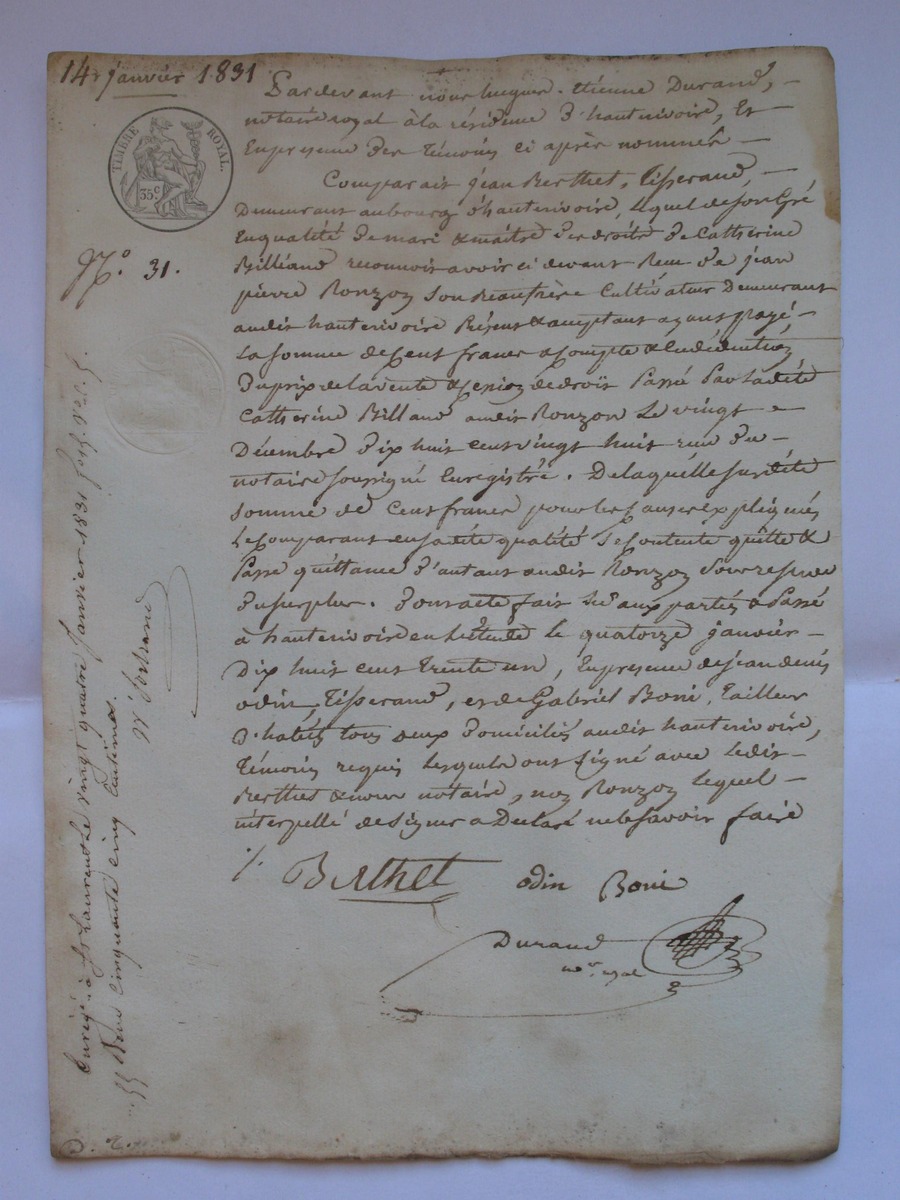 14 janvier 1831
TIMBRE ROYAL.
35 c.
N.º 31.
Pardevant nous hugues étienne Durand,
notaire royal à la résidence d'hauterivoire, Et
En presence des témoins ci après nommés
Comparait jean Berthet, Tisserand,
Demeurant au bourg d'hauterivoire, Lequel de son Gré
En qualité de mari & maître des droits de Catherine
Billiand reconnoit avoir ci devant Reçu de jean
pierre Ronzon son beau frère Cultivateur Demeurant
audit hauterivoire Présent & acceptant ayant payé
La somme de Cent francs acompte &
Du prix de la vente & cession de droit Passé Par Ladite
Catherine Billand audit Ronzon Le vingt
Décembre Dix huit cent vingt huit reçu du
notaire soussigné Enregistré. De laquelle susdite
somme de Cent francs pour les causes expliqués
Le Comparant en sadite qualité Se contente quitte &
Passe quittance d'autant audit Ronzon
Du surplus. Dont acte fait Lu aux parties & Passé
à hauterivoire en L'étude le quatorze janvier
Dix huit cent trente un, En presence de jean denis
odin, Tisserand, et de Gabriel Boni, Tailleur
D'habits tous deux Domiciliés audit hauterivoire,
Témoins requis Lesquels ont signé avec Ledit
Berthet & nous notaire, non Ronzon lequel
interpellé de signer a Declaré ne le savoir faire
Berthet odin Boni
Durand
nore royal
Enregé. à St Laurent Le vingt quatre Janvier 1831
Reçu Cinquante cinq Centimes.